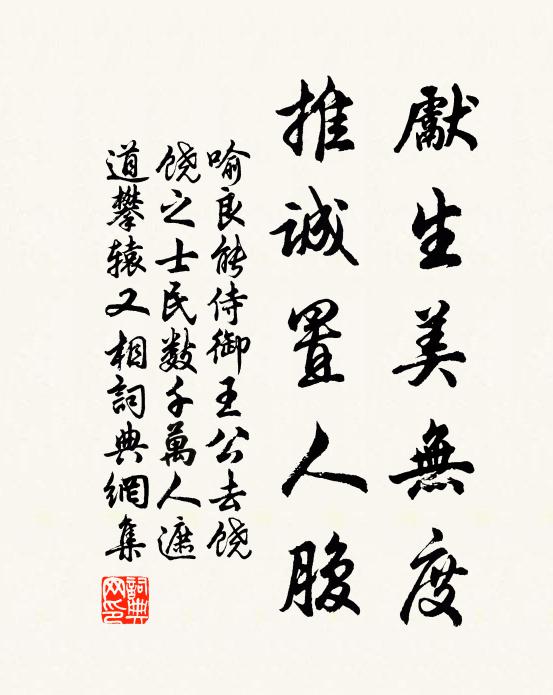 獻生美無度
推誠置人腹
喻良能侍御王公去饶
饶之士民数千萬人遮
道攀辕又相詞典網集
詞典
网印